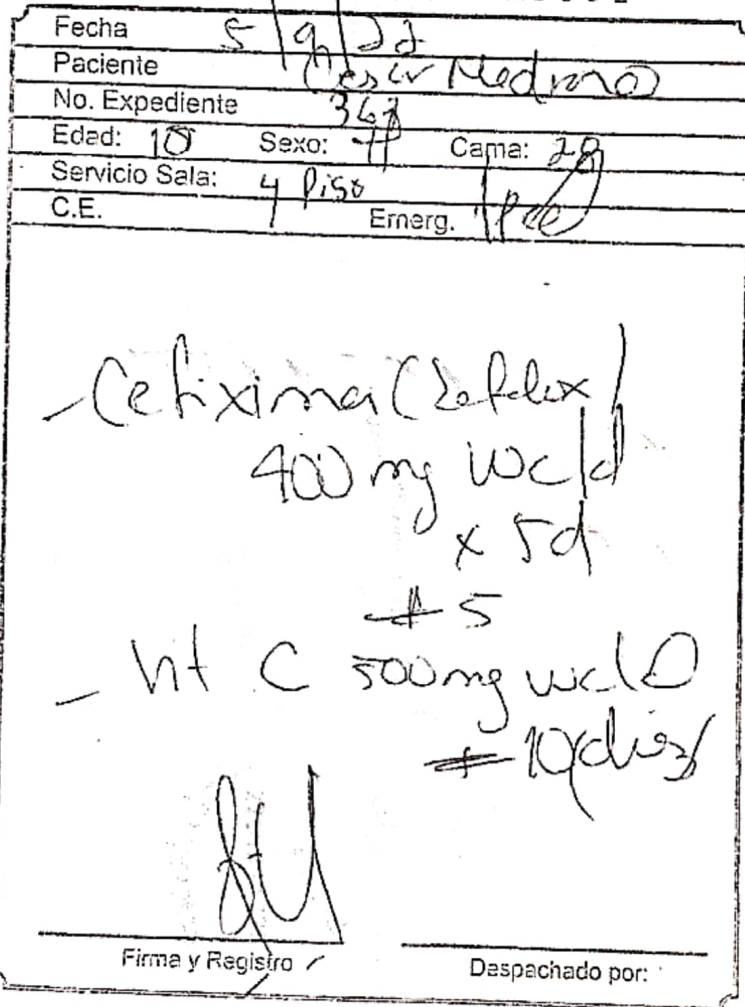 Fecha 5/9/22
Paciente Cesar Medrano
No. Expediente
Edad: 10 Sexo: H Cama: 28
Servicio Sala: 4 Piso
C.E. Emerg.
- Cefixima (
400 mg vo c/d
x 5d
# 5
- Vit C 500mg vo c/D
# 10 (diez)
Firma y Registro Despachado por: